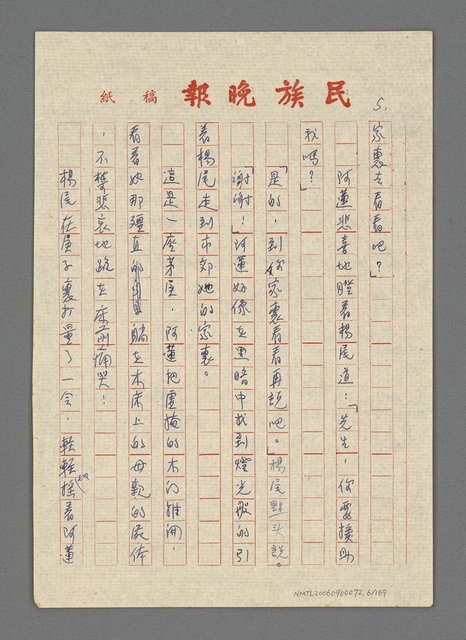 民族晚報 稿紙
5.
家裏去看看吧？」
阿蓮悲喜地瞪着楊尾道：「先生，你要援助
我嗎？」
「是的，到你家裏看看再說吧。」楊尾點头說。
「謝謝！」阿蓮好像在黑暗中找到燈光般的引
着楊尾走到市郊她的家裏。
這是一座茅屋，阿蓮把虛掩的木门推開，
看着她那殭直的躺在木床上的母親的屍体
，不禁悲哀地跪在床前痛哭！
楊尾在屋子裏打量了一会，輕輕地搖着阿蓮
NMTL20060900072,6/169